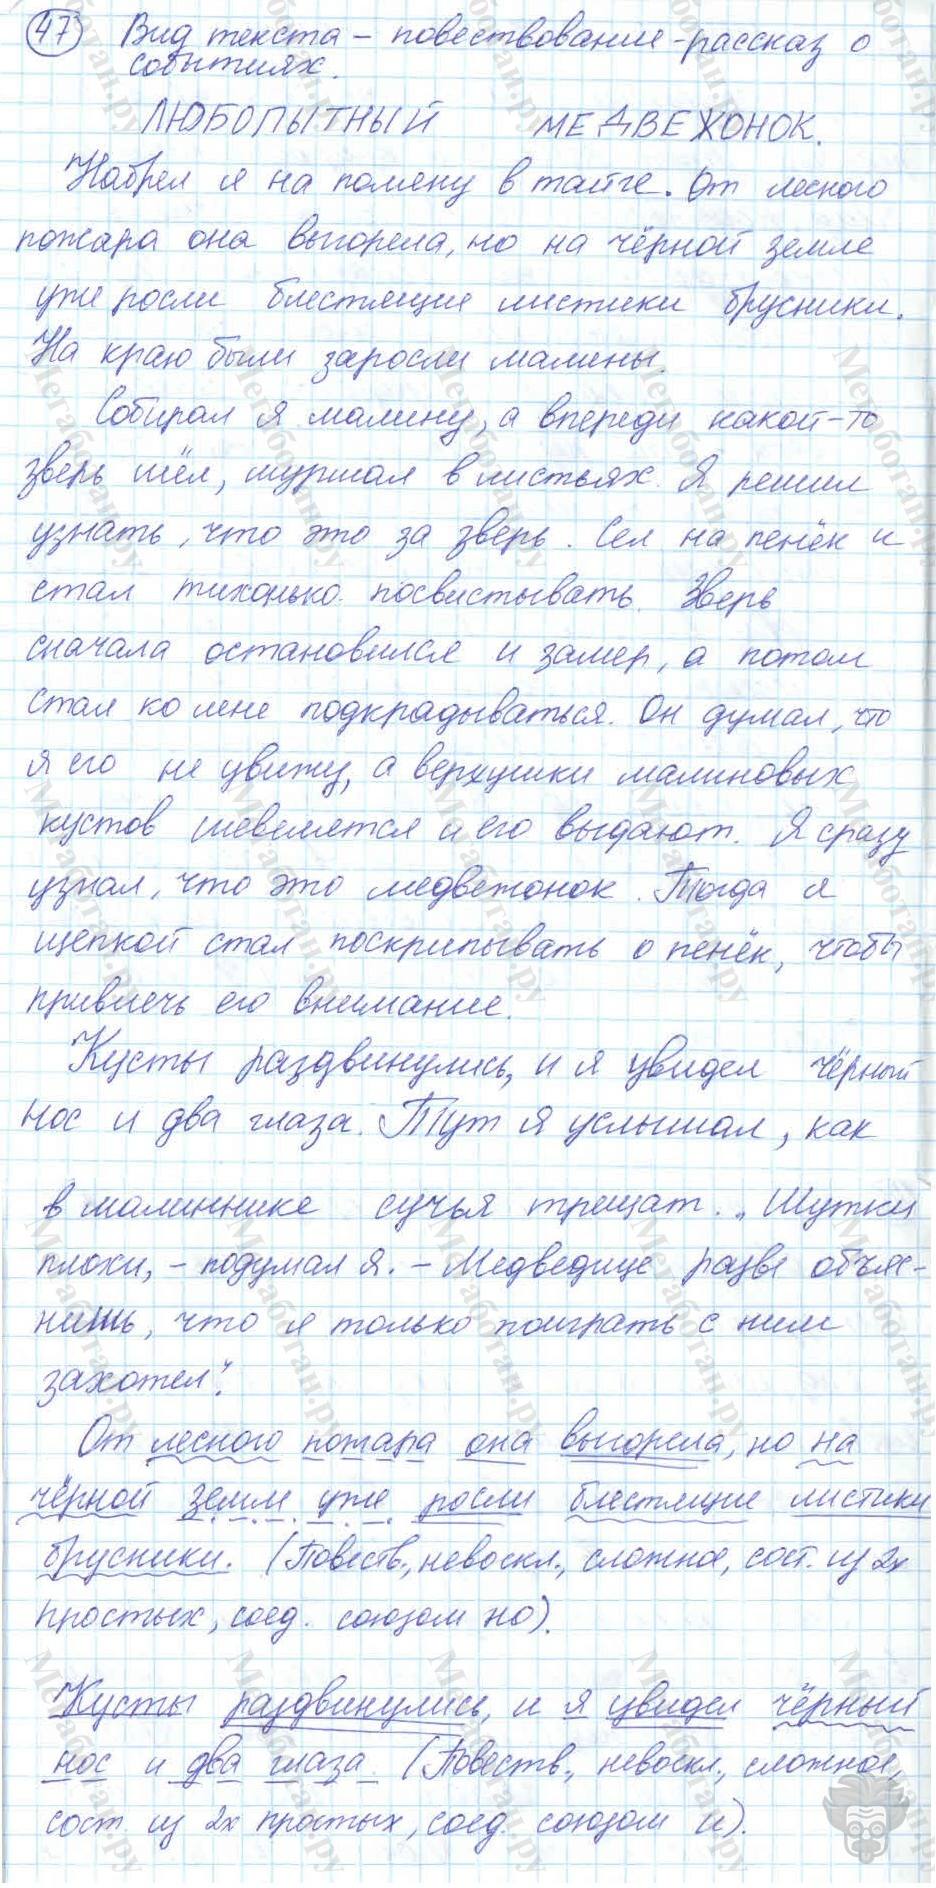 47 Вид текста – повествование-рассказ о
событиях.
ЛЮБОПЫТНЫЙ МЕДВЕЖОНОК.
Набрел я на поляну в тайге. От лесного
пожара она выгорела, но на чёрной земле
уже росли блестящие листики брусники.
На краю были заросли малины.
Собирал я малину, а впереди какой-то
зверь шёл, шуршал в листьях. Я решил
узнать, что это за зверь. Сел на пенёк и
стал тихонько посвистывать. Зверь
сначала остановился и замер, а потом
стал ко мне подкрадываться. Он думал, что
я его не увижу, а верхушки малиновых
кустов шевелятся и его выдают. Я сразу
узнал, что это медвежонок. Тогда я
щепкой стал поскрипывать о пенёк, чтобы
привлечь его внимание.
Кусты раздвинулись, и я увидел чёрный
нос и два глаза. Тут я услышал, как
в малиннике сучья трещат. „Шутки
плохи, – подумал я. – Медведице разве объяс-
нишь, что я только поиграть с ним
захотел".
От лесного пожара она выгорела, но на
чёрной земле уже росли блестящие листики
брусники. (Повеств., невоскл., сложное, сост. из 2х
простых, соед. союзом но).
Кусты раздвинулись, и я увидел чёрный
нос и два глаза. (Повеств., невоскл., сложное,
сост. из 2х простых, соед. союзом и).
Мегаботан.ру